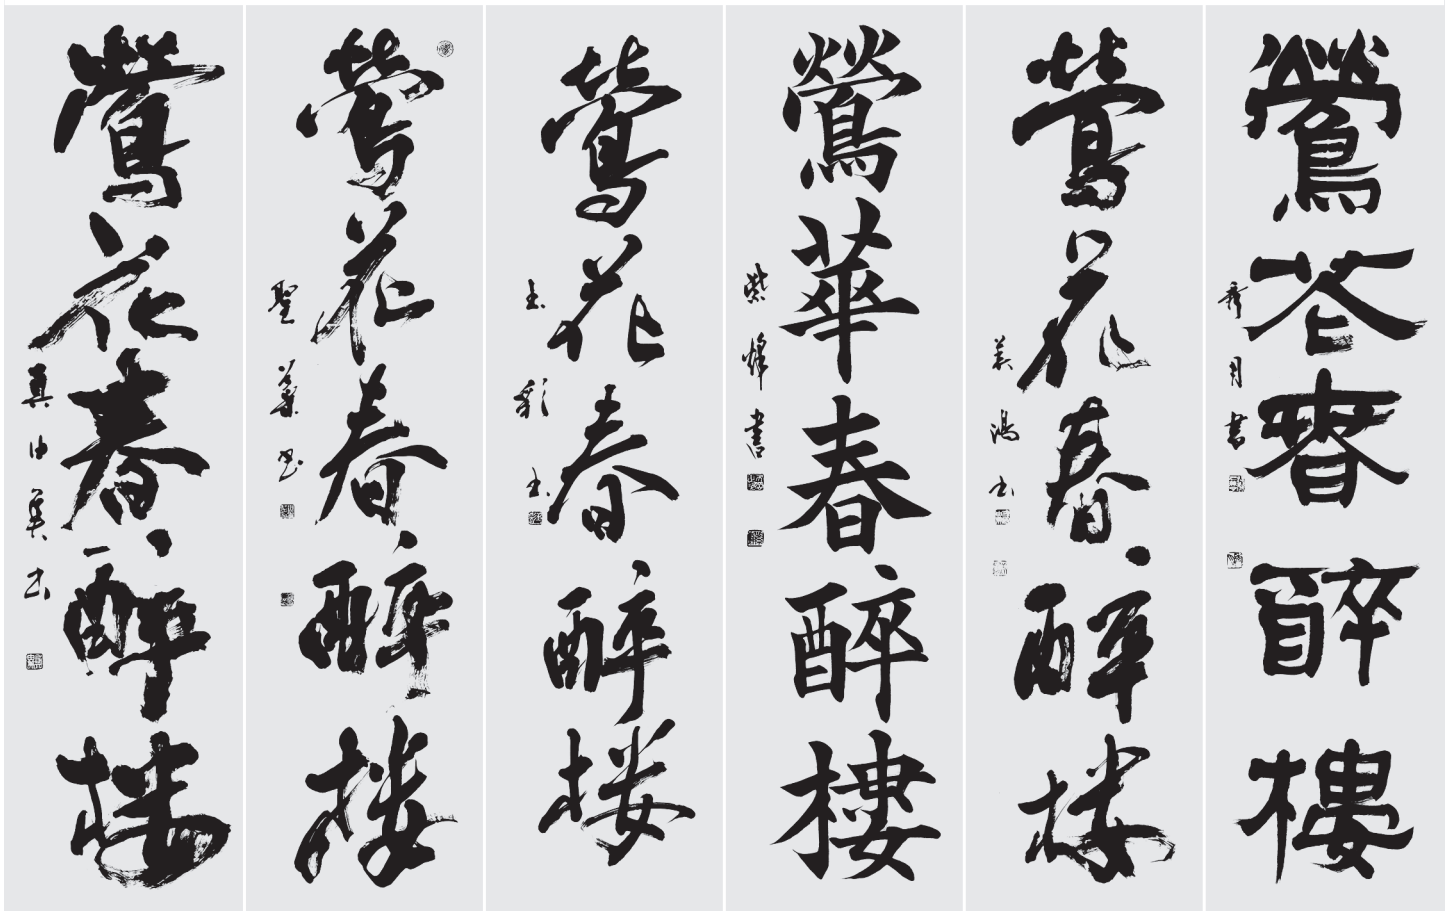 鶯花春醉樓
秀月書
鶯花春醉樓
美鴻書
鶯華春醉樓
紫峰書
鶯花春醉樓
玉彩書
鶯花春醉樓
聖葉書
鶯花春醉樓
真由美書